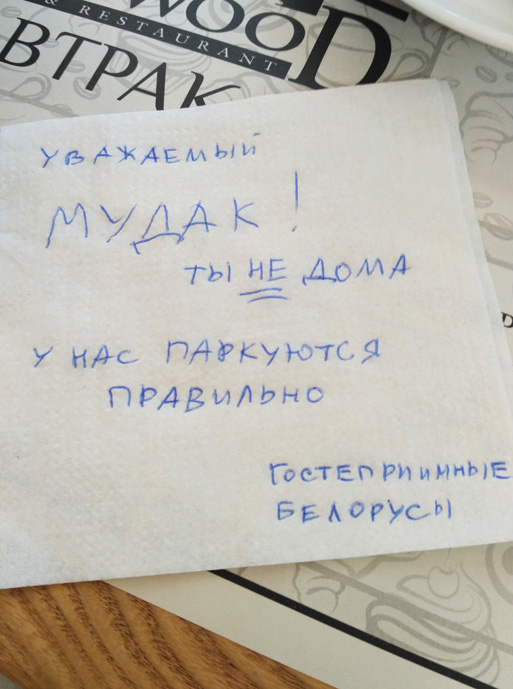 WOOD
& RESTAURANT
ВТРАК
УВАЖАЕМЫЙ
МУДАК!
ТЫ НЕ ДОМА
У НАС ПАРКУЮТСЯ
ПРАВИЛЬНО
ГОСТЕПРИИМНЫЕ
БЕЛОРУСЫ